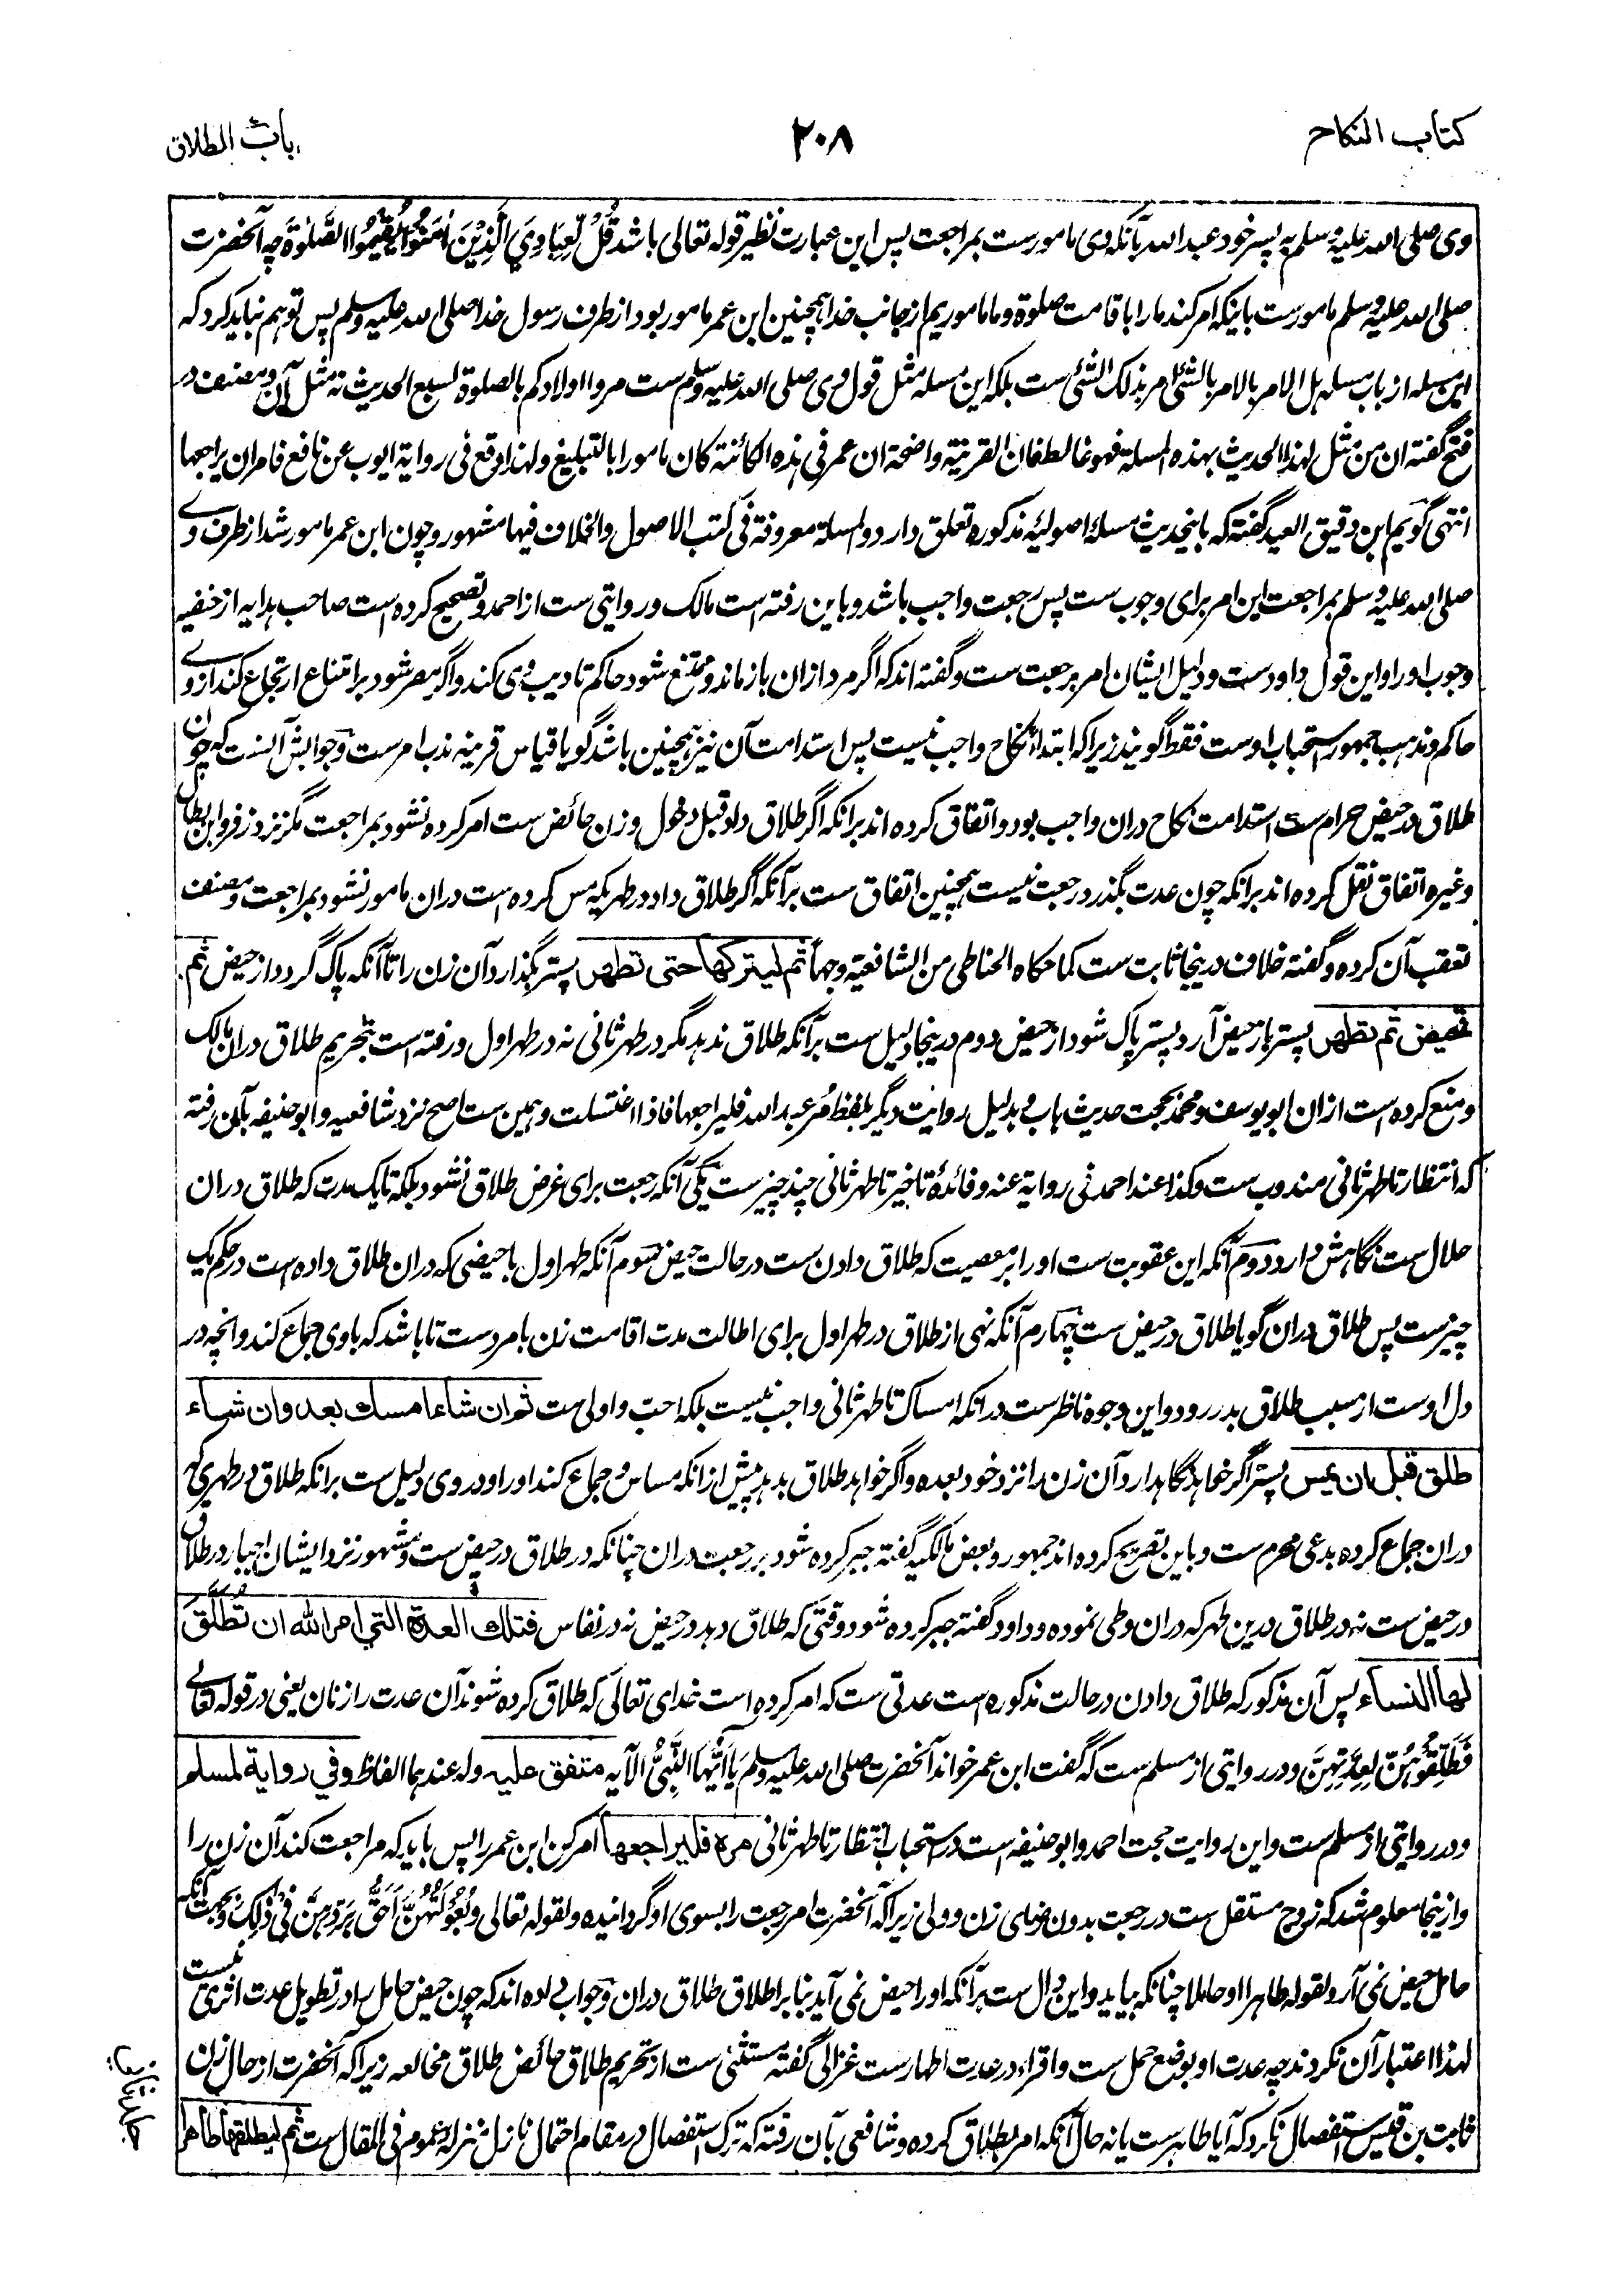 کتاب النکاح
۲۰۸
باب الطلاق
وی صلی الله علیه وسلم به پسر خود عبد الله بآنکه وی مامورست بمراجعت پس این عبارت نظیر قوله تعالی باشد قُلْ لِّعِبَادِيَ الَّذِيْنَ اٰمَنُوْا يُقِيْمُوا الصَّلٰوةَ چه آنحضرت
صلی الله علیه وسلم مامورست باینکه امر کند ما را باقامت صلوة و ما ماموریم از جانب خدا همچنین ابن عمر مامور بود از طرف رسول خدا صلی الله علیه وسلم پس توهم نباید کرد که
این مسله از باب مسله هل الامر بالامر بالشئ امر بذلک الشئ ست بلکه این مسله مثل قول وی صلی الله علیه وسلم ست مروا اولادکم بالصلوة لسبع الحدیث نه مثل آن و مصنف در
فتح گفته ان من مثل لهذا الحدیث بهذه المسلة فهو غالط فان القرینة واضحة ان عمر فی هذه الکائنة کان مامورا بالتبلیغ ولهذا وقع فی روایة ایوب عن نافع فامره ان یراجعها
انتهی گویم ابن دقیق العید گفته که باینحدیث مسئلۀ اصولیۀ مذکوره تعلق دارد والمسلة معروفة فی کتب الاصول والخلاف فیها مشهور و چون ابن عمر مامور شد از طرف وے
صلی الله علیه وسلم بمراجعت این امر برای وجوب ست پس رجعت واجب باشد و باین رفته است مالک و روایتی ست از احمد و تصحیح کرده است صاحب هدایه از حنفیه
وجوب او را و این قول داودست و دلیل ایشان امر برجعت ست و گفته اند که اگر مرد ازان باز ماند و ممتنع شود حاکم تادیب وی کند و اگر مصر شود بر امتناع ارتجاع کند از وے
حاکم و مذهب جمهور استحباب اوست فقط گویند زیرا که ابتداء نکاح واجب نیست پس استدامت آن نیز همچنین باشد گویا قیاس قرینه ندب امرست و جوابش آنست که چون
طلاق در حیض حرام ست استدامت نکاح دران واجب بود و اتفاق کرده اند برانکه اگر طلاق داد قبل دخول و زن حائض ست امر کرده نشود بمراجعت مگر نزد زفر و ابن بطال
وغیره اتفاق نقل کرده اند برانکه چون عدت بگذرد رجعت نیست همچنین اتفاق ست برآنکه اگر طلاق داد در طهریکه مس کرده است دران مامور نشود بمراجعت و مصنف
تعقب آن کرده و گفته خلاف درینجا ثابت ست کما حکاه الحناطی من الشافعیة وجها ثم لیترکها حتی تطهر پستر بگذارد آن زن را تا آنکه پاک گردد از حیض ثم
تحیض ثم تطهر پستر باز حیض آرد پستر پاک شود از حیض دوم درینجا دلیل ست برآنکه طلاق ندهد مگر در طهر ثانی نه در طهر اول و رفته است بتحریم طلاق دران مالک
و منع کرده است ازان ابو یوسف و محمد بحجت حدیث باب و بدلیل روایت دیگر بلفظ مُر عبد الله فلیراجعها فاذا اغتسلت و همین ست اصح نزد شافعیه و ابو حنیفه بآن رفته
که انتظار تا طهر ثانی مندوب ست و کذا عند احمد فی روایة عنه و فائدۀ تاخیر تا طهر ثانی چند چیزست یکی آنکه رجعت برای غرض طلاق نشود بلکه تا یک مدت که طلاق دران
حلال ست نگاهش دارد دوم آنکه این عقوبت ست او را بر معصیت که طلاق دادن ست در حالت حیض سوم آنکه طهر اول با حیضی که دران طلاق داده است در حکم یک
چیزست پس طلاق دران گویا طلاق در حیض ست چهارم آنکه نهی از طلاق در طهر اول برای اطالت مدت اقامت زن با مردست تا باشد که با وی جماع کند و آنچه در
دل اوست از سبب طلاق بدر رود و این وجوه ناظرست درانکه امساک تا طهر ثانی واجب نیست بلکه احب و اولی ست ثم ان شاء امسك بعد وان شاء
طلق قبل ان یمس پستر اگر خواهد نگاهدارد آن زن را نزد خود بعده و اگر خواهد طلاق بدهد پیش ازانکه مساس و جماع کند او را و درروی دلیل ست برانکه طلاق در طهری که
دران جماع کرده بدعی محرم ست و باین تصریح کرده اند جمهور و بعض مالکیه گفته جبر کرده شود بر رجعت دران چنانکه در طلاق در حیض ست و مشهور نزد ایشان اجبار در طلاق
در حیض ست نه در طلاق درین طهر که دران وطی نموده و داود گفته جبر کرده شود وقتی که طلاق دهد در حیض نه در نفاس فتلك العدة التي امر الله ان تُطَلَّقَ
لها النساء پس آن مذکور که طلاق دادن در حالت مذکوره است عدتی ست که امر کرده است خدای تعالی که طلاق کرده شوند آن عدت را زنان یعنی در قوله تعالے
فَطَلِّقُوْهُنَّ لِعِدَّتِهِنَّ و در روایتی از مسلم ست که گفت ابن عمر خواند آنحضرت صلی الله علیه وسلم يَا اَيُّهَا النَّبِيُّ الآیه متفق علیه وله عندهما الفاظ وفي رواية لمسلم
و در روایتی از مسلم ست و این روایت حجت احمد و ابو حنیفه است در استحباب انتظار تا طهر ثانی مره فلیراجعها امر کن ابن عمر را پس باید که مراجعت کند آن زن را
و ازینجا معلوم شد که زوج مستقل ست در رجعت بدون رضای زن و ولی زیرا که آنحضرت امر رجعت را بسوی او گردانیده و لقوله تعالی وَبُعُوْلَتُهُنَّ اَحَقُّ بِرَدِّهِنَّ فِيْ ذٰلِكَ و بحجت آنکه
حامل حیض نمی آرد لقوله طاهرا او حاملا چنانکه بیاید و این دال ست برآنکه او را حیض نمی آید بنا بر اطلاق طلاق دران و جواب داده اند که چون حیض حامل را در تطویل عدت اثری نیست
لهذا اعتبار آن نکردند چه عدت او بوضع حمل ست و اقراء در عدت اطهارست غزالی گفته مستثنی ست از تحریم طلاق حائض طلاق مخالعه زیرا که آنحضرت از حال زن
ثابت بن قیس استفصال نکرد که آیا طاهرست یا نه حال آنکه امر بطلاق کرده و شافعی بآن رفته که ترک استفصال در مقام احتمال نازل بمنزلۀ عموم فی المقال ست ثم لیطلقها طاهرا